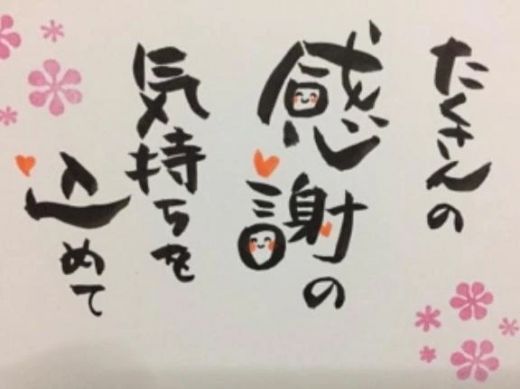 たくさんの
感謝の
気持ちを
込めて